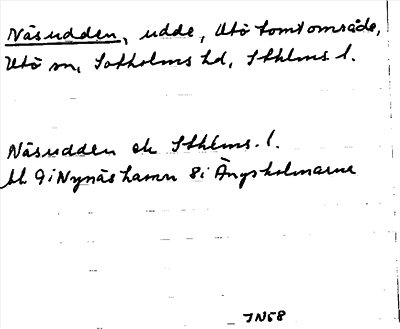 Näsudden, udde, Utö tomtområde,
Utö sn, Sotholms hd, Sthlms l.
Näsudden ek Sthlms. l.
bl. 9i Nynäshamn 8i Ängsholmarna
JN68